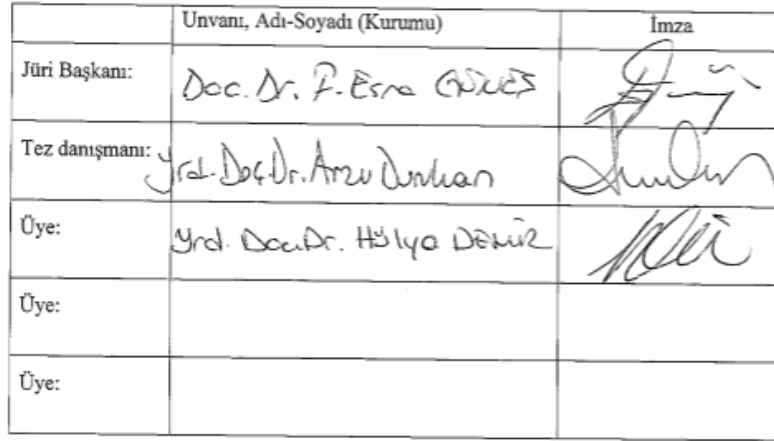 Unvanı, Adı-Soyadı (Kurumu) İmza
Jüri Başkanı: Doc. Dr. F. Esra GÜNEŞ
Tez danışmanı: Yrd. Doç. Dr. Arzu Durukan
Üye: Yrd. Doc. Dr. Hülya DEMİR
Üye:
Üye: